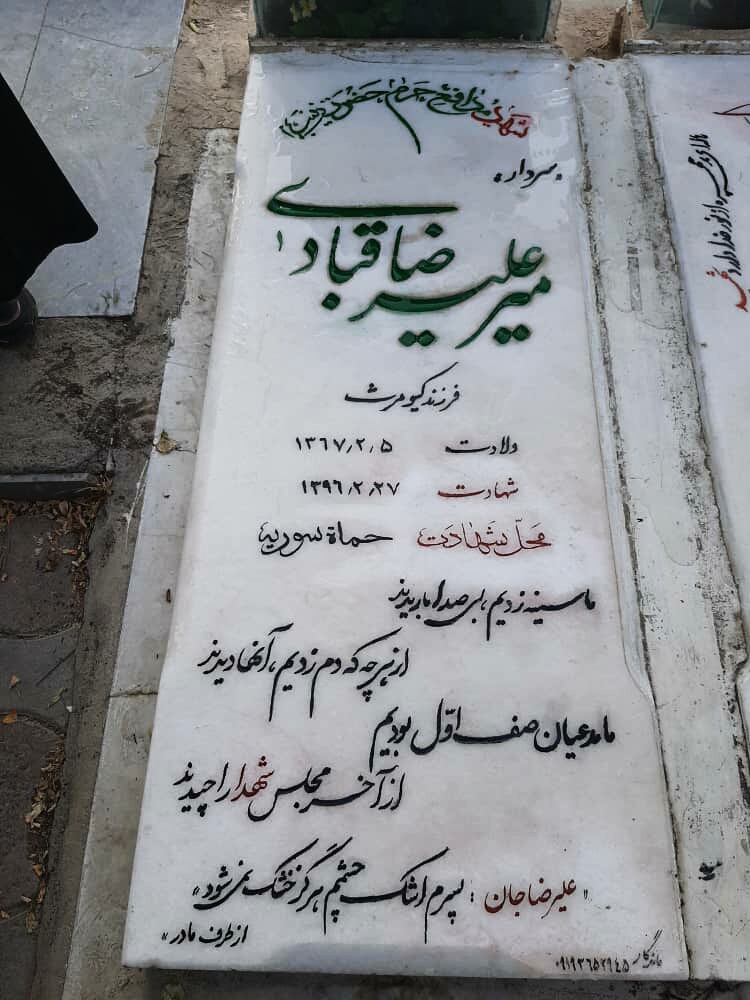 شهید مدافع حرم حضرت زینب
سردار
میرعلیرضا قبادی
فرزند کیومرث
ولادت ۱۳۶۷/۲/۵
شهادت ۱۳۹۶/۲/۲۷
محل شهادت حماة سوریه
ما سینه زدیم، بی صدا باریدند
از هر چه که دم زدیم، آنها دیدند
ما مدعیان صف اول بودیم
از آخر مجلس شهدا را چیدند
"علیرضا جان : پسرم اشک چشمم هرگز خشک نمی شود"
از طرف مادر"
ماندگار ۰۹۱۹۳۶۵۲۹۴۵